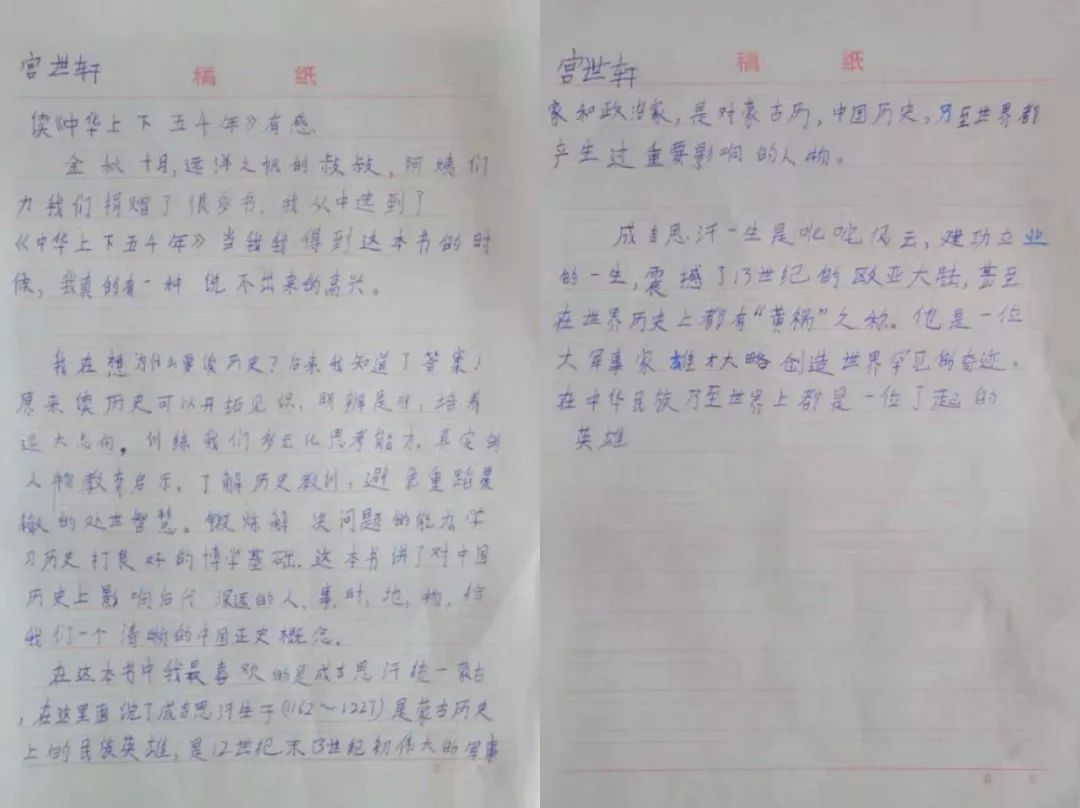 宫世轩
稿 纸
读《中华上下五千年》有感
金秋十月,远洋之帆的叔叔,阿姨们
为我们捐赠了很多书,我从中选到了
《中华上下五千年》当我我得到这本书的时
候,我真的有一种说不出来的高兴。
我在想为什么要读历史?后来我知道了答案!
原来读历史可以开拓见识,明辨是非,培养
远大志向。训练我们多元化思考能力,真实的
人物教育启示,了解历史教训,避免重蹈覆
辙的处世智慧。锻炼解决问题的能力学
习历史打良好的博学基础,这本书讲了对中国
历史上影响后代深远的人,事,时,地,物,给
我们一个清晰的中国正史概念。
在这本书中我最喜欢的是成吉思汗统一蒙古
,在这里面说了成吉思汗生于(1162~1227)是蒙古历史
上的民族英雄,是12世纪末13世纪初伟大的军事
宫世轩
稿 纸
家和政治家,是对蒙古历,中国历史,乃至世界都
产生过重要影响的人物。
成吉思汗一生是叱咤风云,建功立业
的一生,震撼了13世纪的欧亚大陆,甚至
在世界历史上都有“黄祸”之称。他是一位
大军事家雄才大略创造世界罕见的奇迹,
在中华民族乃至世界上都是一位了起的
英雄